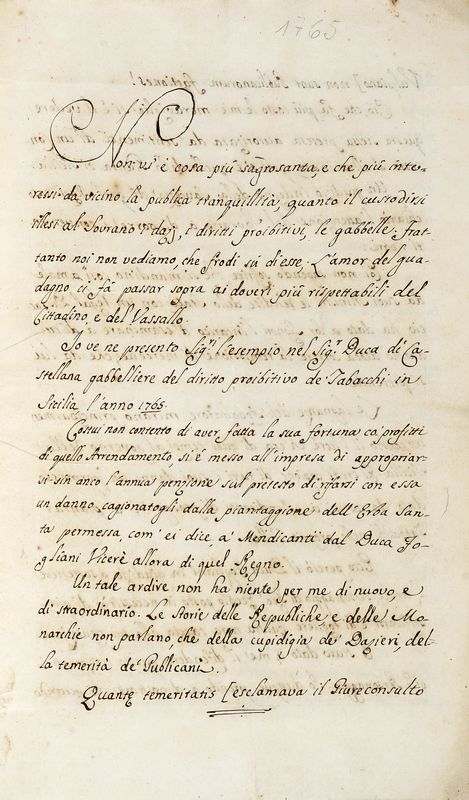 1765
Non vi è cosa più sagrosanta, e che più inte-
ressi da vicino la publica tranquillità, quanto il custodirsi
illesi al Sovrano i dazj, i diritti proibitivi, le gabbelle. Frat
tanto noi non vediamo, che frodi su di esse. L'amor del gua-
dagno ci fà passar sopra ai doveri più rispettabili del
Cittadino, e del Vassallo.
Io ve ne presento Sigri l'esempio nel Sigr Duca di Ca-
stellana gabbelliere del diritto proibitivo de' Tabacchi in
Sicilia l'anno 1765.
Costui non contento di aver fatta la sua fortuna co' profitti
di quello Arrendamento, si è messo all'impresa di appropriar-
si sin anco l'annua penzione sul pretesto di rifarsi con essa
un danno cagionatogli dalla piantaggione dell'Erba San-
ta permessa, com' ei dice a' Mendicanti dal Duca Fo-
gliani Vicerè allora di quel Regno.
Un tale ardire non ha niente per me di nuovo, e
di straordinario. Le Storie delle Republiche e delle Mo-
narchie non parlano, che della cupidigia de' Dazieri, del-
la temerità de' Publicani.
Quantę temeritatis [esclamava il Giureconsulto